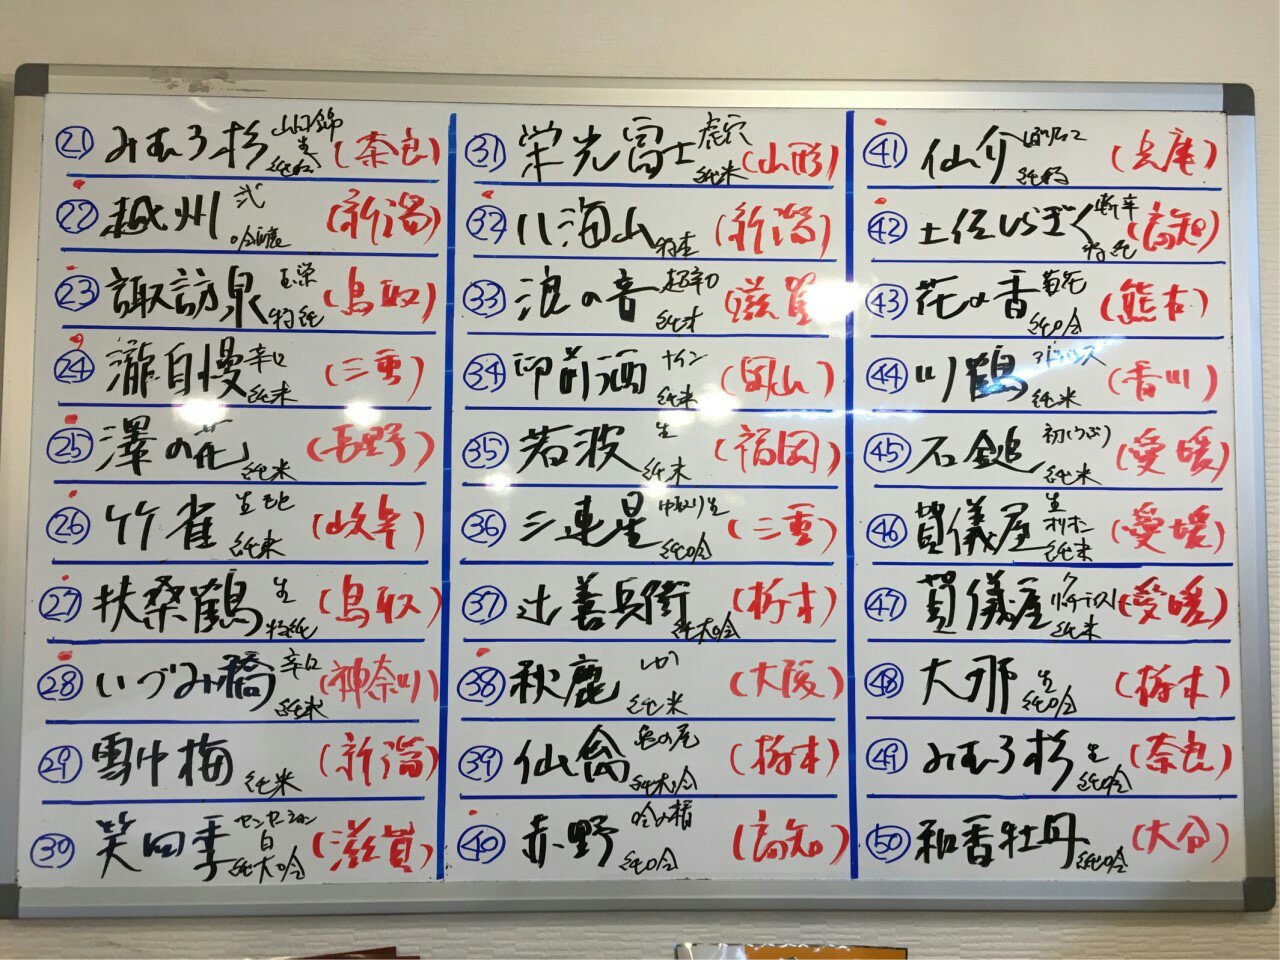 ㉑ みむろ杉 山田錦 生 純吟 (奈良)
㉒ 越州 弐 吟醸 (新潟)
㉓ 諏訪泉 玉栄 特純 (鳥取)
㉔ 瀧自慢 辛口 純米 (三重)
㉕ 澤の花 純米 (長野)
㉖ 竹雀 生もと 純米 (岐阜)
㉗ 扶桑鶴 生 特純 (鳥取)
㉘ いづみ橋 辛口 純米 (神奈川)
㉙ 雪中梅 純米 (新潟)
㉚ 笑四季 センセーション 白 純大吟 (滋賀)
㉛ 栄光冨士 虎穴 純米 (山形)
㉜ 八海山 特本 (新潟)
㉝ 浪の音 超辛口 純米 (滋賀)
㉞ 御前酒 ナイン 純米 (岡山)
㉟ 若波 生 純米 (福岡)
㊱ 三連星 中取り生 純吟 (三重)
㊲ 辻善兵衛 純大吟 (栃木)
㊳ 秋鹿 しか 純米 (大阪)
㊴ 仙禽 亀の尾 純大吟 (栃木)
㊵ 赤野 吟の精 純吟 (高知)
㊶ 仙介 純吟 (兵庫)
㊷ 土佐しらぎく 斬辛 特純 (高知)
㊸ 花の香 菊花 純吟 (熊本)
㊹ 川鶴 純米 (香川)
㊺ 石鎚 初しぼり 純米 (愛媛)
㊻ 賀儀屋 生 オリオン 純米 (愛媛)
㊼ 賀儀屋 純米 (愛媛)
㊽ 大那 生 純吟 (栃木)
㊾ みむろ杉 生 純吟 (奈良)
㊿ 和香牡丹 純吟 (大分)